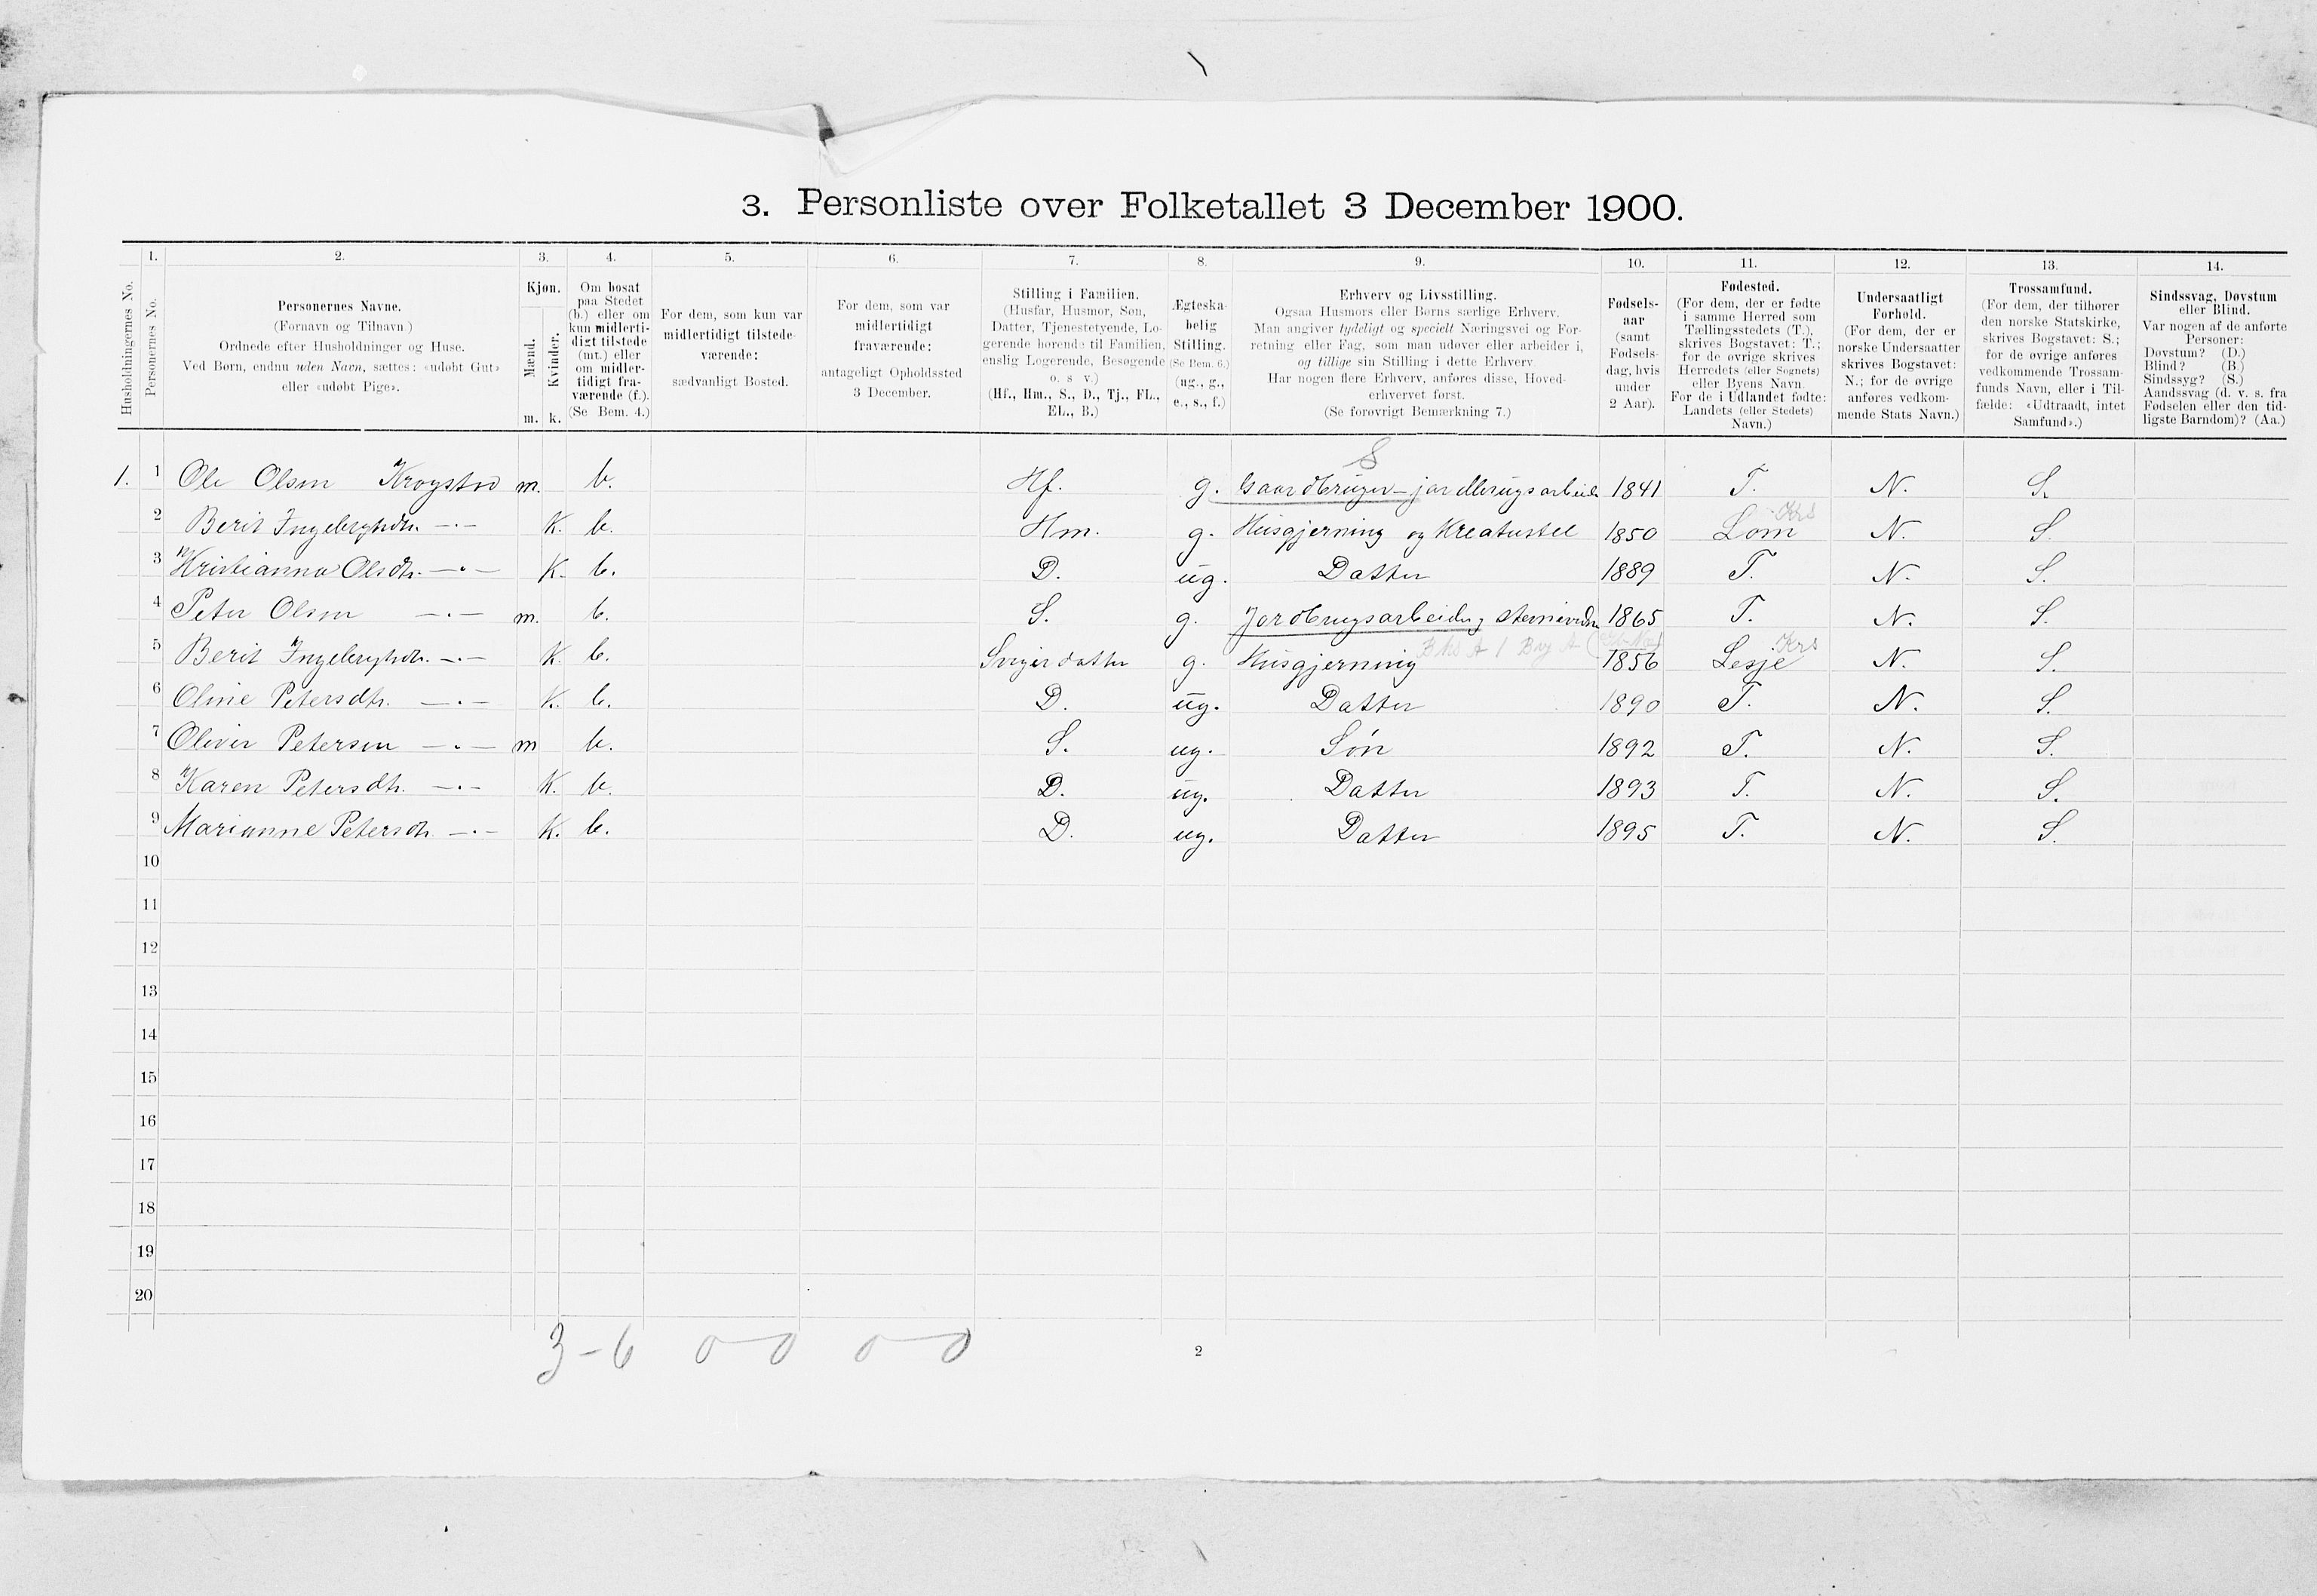 3. Personliste over Folketallet 3 December 1900.
1. 2. 3. 4. 5. 6. 7. 8. 9. 10. 11. 12. 13. 14.
Husholdningernes No.
Personernes No.
Personernes Navne.
(Fornavn og Tilnavn.)
Ordnede efter Husholdninger og Huse.
Ved Børn, endnu uden Navn, sættes: «udøbt Gut»
eller «udøbt Pige».
Kjøn.
Mænd.
Kvinder.
m. k.
Om bosat
paa Stedet
(b.) eller om
kun midlerti-
digt tilstede
(mt.) eller
om midler-
tidigt fra-
værende (f.).
(Se Bem. 4.)
For dem, som kun var
midlertidigt tilstede-
værende:
sædvanligt Bosted.
For dem, som var
midlertidigt
fraværende:
antageligt Opholdssted
3 December.
Stilling i Familien.
(Husfar, Husmor, Søn,
Datter, Tjenestetyende, Lo-
gerende hørende til Familien,
enslig Logerende, Besøgende
o. s. v.)
(Hf., Hm., S., D., Tj., FL.,
EL., B.)
Ægteska-
belig
Stilling.
(Se Bem. 6.)
(ug., g.,
e., s., f.)
Erhverv og Livsstilling.
Ogsaa Husmors eller Børns særlige Erhverv.
Man angiver tydeligt og specielt Næringsvei og For-
retning eller Fag, som man udøver eller arbeider i,
og tillige sin Stilling i dette Erhverv.
Har nogen flere Erhverv, anføres disse, Hoved-
erhvervet først.
(Se forøvrigt Bemærkning 7.)
Fødsels-
aar
(samt
Fødsels-
dag, hvis
under
2 Aar).
Fødested.
(For dem, der er fødte
i samme Herred som
Tællingsstedets (T.),
skrives Bogstavet: T.;
for de øvrige skrives
Herredets (eller Sognets)
eller Byens Navn.
For de i Udlandet fødte:
Landets (eller Stedets)
Navn.)
Undersaatligt
Forhold.
(For dem, der er
norske Undersaatter
skrives Bogstavet:
N.; for de øvrige
anføres vedkom-
mende Stats Navn.)
Trossamfund.
(For dem, der tilhører
den norske Statskirke,
skrives Bogstavet: S.;
for de øvrige anføres
vedkommende Trossam-
funds Navn, eller i Til-
fælde: «Udtraadt, intet
Samfund».)
Sindssvag, Døvstum
eller Blind.
Var nogen af de anførte
Personer:
Døvstum? (D.)
Blind? (B.)
Sindssyg? (S.)
Aandssvag (d. v. s. fra
Fødselen eller den tid-
ligste Barndom)? (Aa.)
S
1. 1 Ole Olsen Krogstad m. b. Hf. g. Gaardbruger - jordbrugsarbeide 1841 T. N. S.
Krs
2 Berit Ingebrigtsdtr. -·- K. b. Hm. g. Husgjerning og Kreaturstel 1850 Lom N. S.
3 Kristianna Olsdtr. -·- K. b. D. ug. Datter 1889 T. N. S.
4 Peter Olsen -·- m. b. S. g. Jordbrugsarbeide 1865 T. N. S.
Krs
5 Berit Ingebrigtsdtr. -·- K. b. Svigerdatter g. Husgjerning 1856 Lesje N. S.
6 Oline Petersdtr. -·- K. b. D. ug. Datter 1890 T. N. S.
7 Oliver Petersen -·- m b. S. ug. Søn 1892 T. N. S.
8 Karen Petersdtr. -·- K. b. D. ug. Datter 1893 T. N. S.
9 Marianne Petersdtr. -·- K. b. D. ug. Datter 1895 T. N. S.
10
11
12
13
14
15
16
17
18
19
20
3-6 0-0 0-0
2